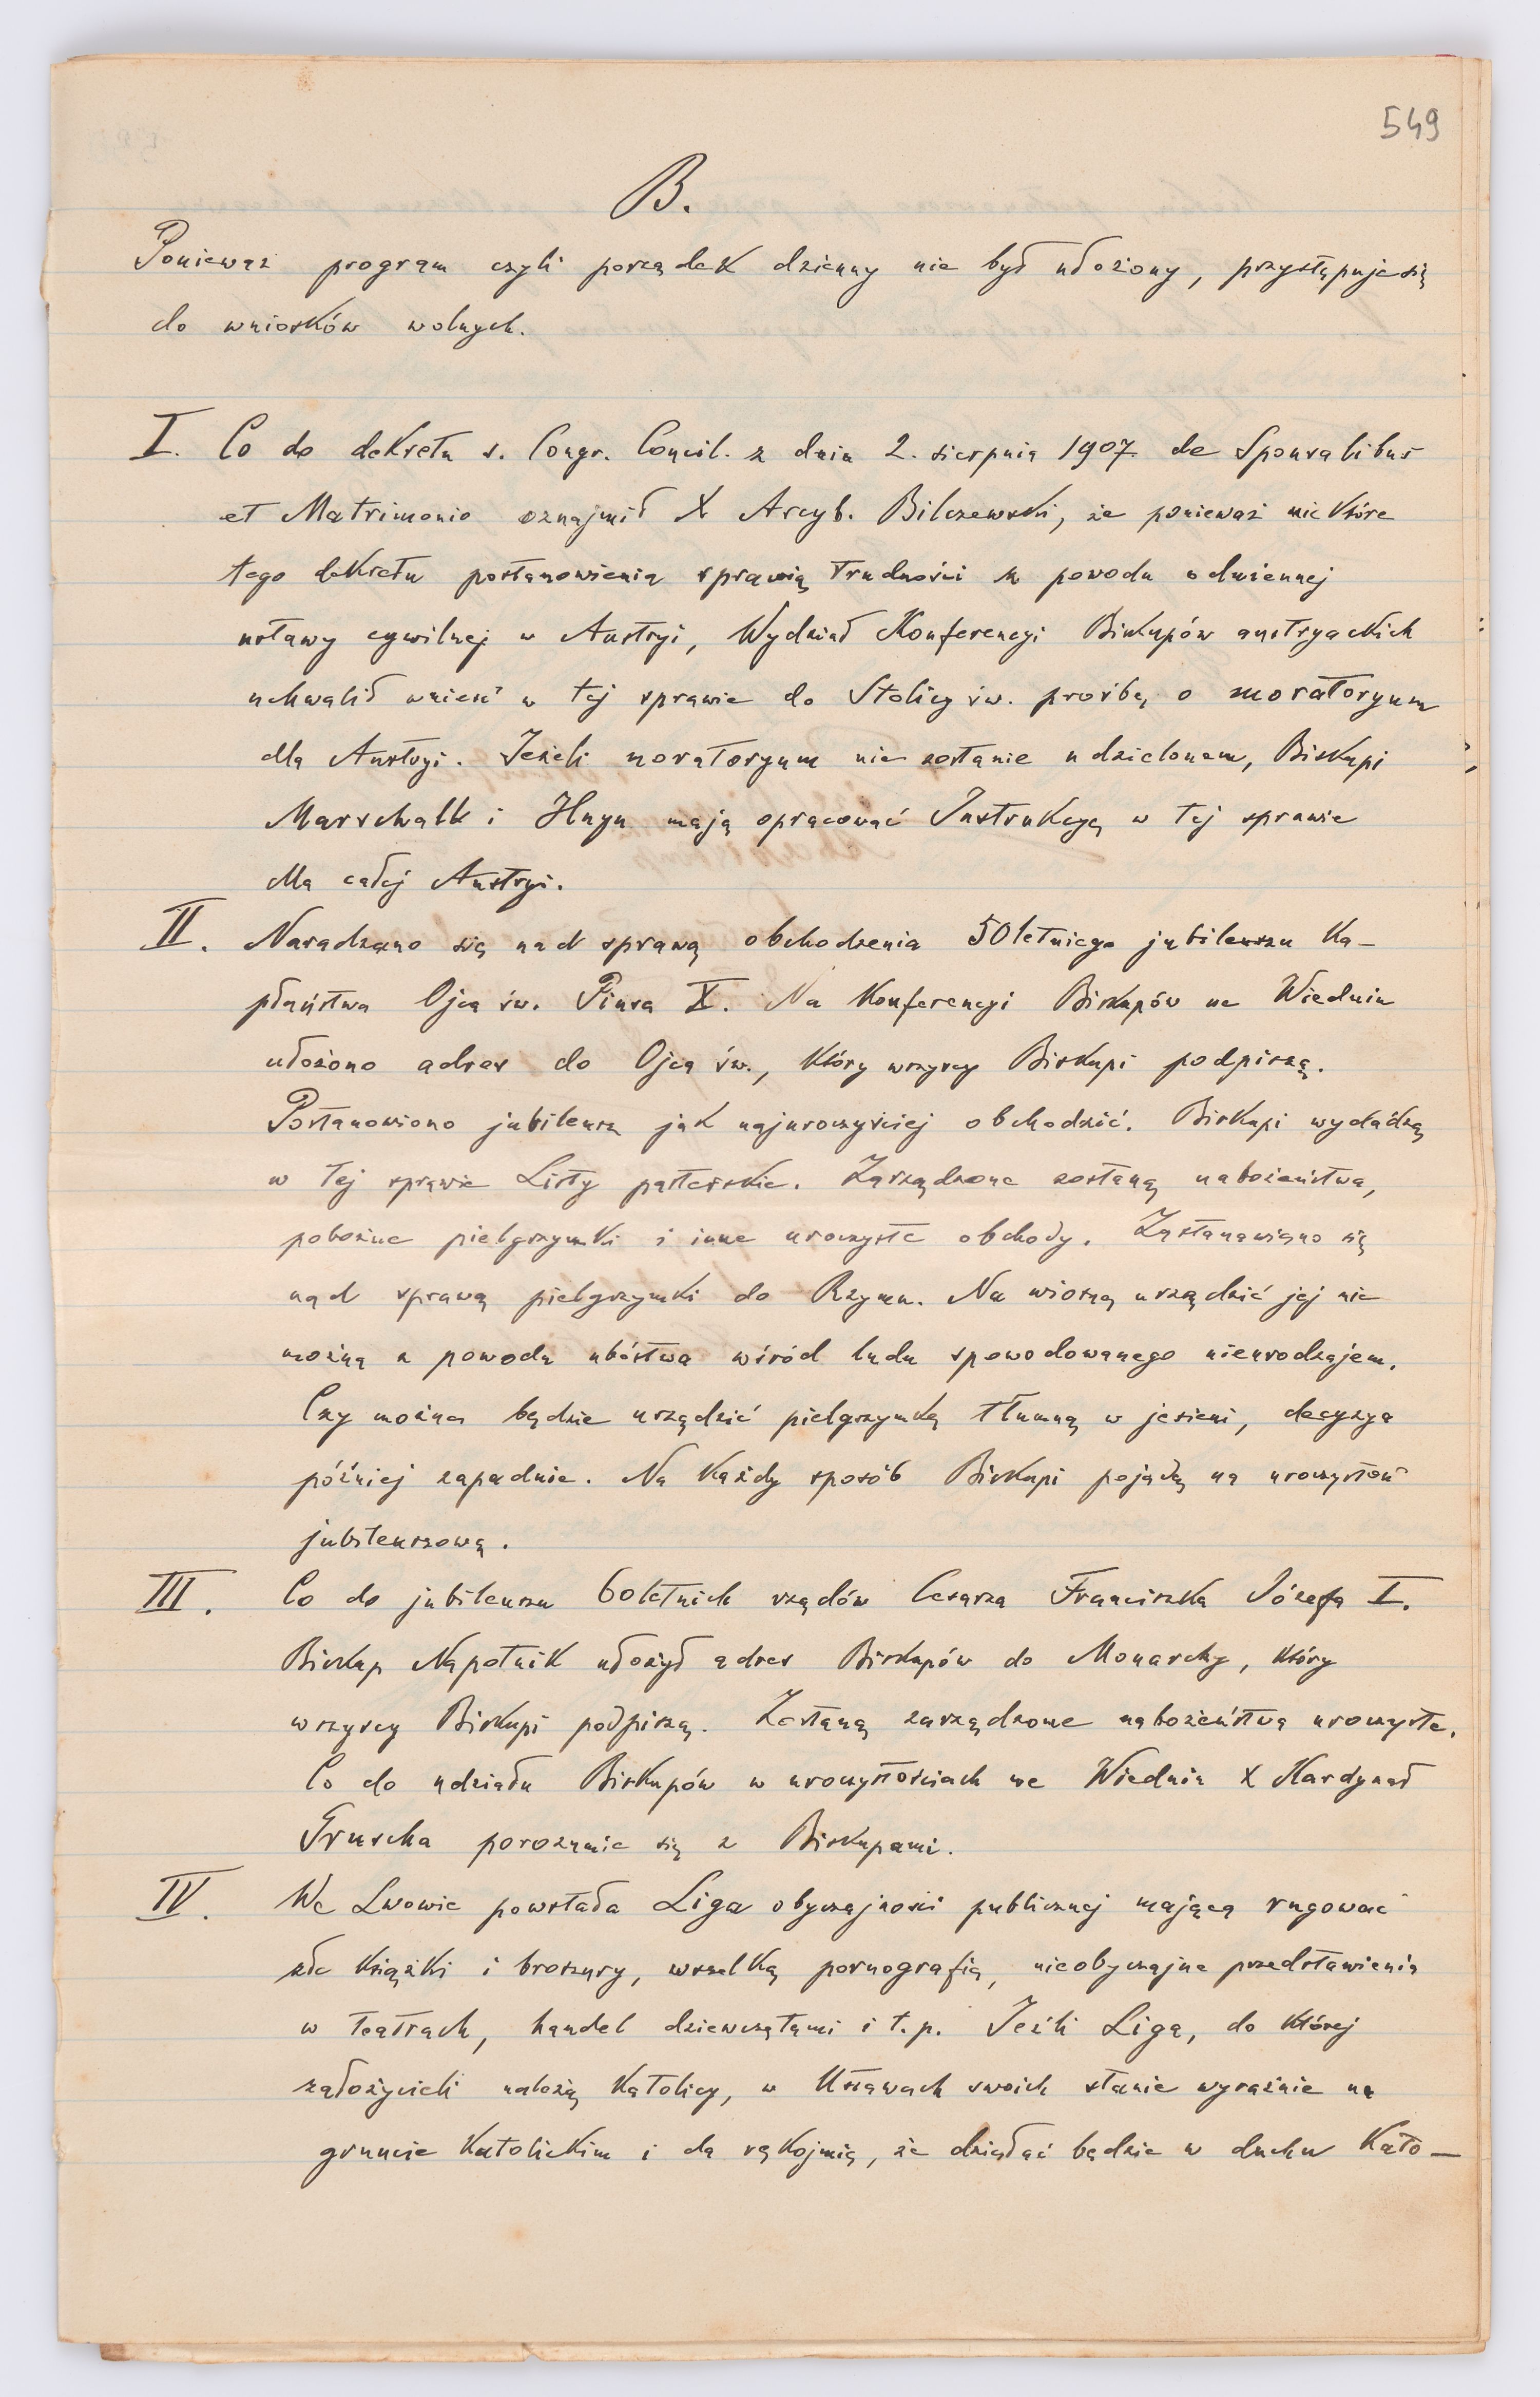 549
B.
Ponieważ program czyli porządek dzienny nie był ułożony, przystąpuje się
do wniosków wolnych.
I. Co do dekretu s. Congr. Concil. z dnia 2. sierpnia 1907 de Sponsalibus
et Matrimonio oznajmił X Arcyb. Bilczewski, że ponieważ niektóre
tego dekretu postanowienia sprawią trudności z powodu odmiennej
ustawy cywilnej w Austryi, Wydział Konferencyi Biskupów austryackich
uchwalił wnieść w tej sprawie do Stolicy św. prośbę o moratoryum
dla Austryi. Jeżeli moratoryum nie zostanie udzielonem, Biskupi
Marschall i Huyn mają opracować Instrukcyę w tej sprawie
dla całej Austryi.
II. Naradzano się nad sprawą obchodzenia 50letniego jubileuszu Ka-
płaństwa Ojca św. Piusa X. Na Konferencyi Biskupów we Wiedniu
ułożono adres do Ojca św., który wszyscy Biskupi podpiszą.
Postanowiono jubileusz jak najuroczyściej obchodzić. Biskupi wydadzą
w tej sprawie Listy pasterskie. Zarządzone zostaną nabożeństwa,
pobożne pielgrzymki i inne uroczyste obchody. Zastanawiano się
nad sprawą pielgrzymki do Rzymu. Na wiosnę urządzić jej nie
można z powodu ubóstwa wśród ludu spowodowanego nieurodzajem.
Czy można będzie urządzić pielgrzymkę tłumną w jesieni, decyzya
później zapadnie. Na każdy sposób Biskupi pojadą na uroczystość
jubileuszową.
III. Co do jubileuszu 60letnich rządów Cesarza Franciszka Józefa I.
Biskup Napotnik ułożył adres Biskupów do Monarchy, który
wszyscy Biskupi podpiszą. Zostaną zarządzone nabożeństwa uroczyste.
Co do udziału Biskupów w uroczystościach we Wiedniu X Kardynał
Gruscha porozumie się z Biskupami.
IV. We Lwowie powstała Liga obyczajności publicznej mająca rugować
złe książki i broszury, wszelką pornografię, nieobyczajne przedstawienia
w teatrach, handel dziewczętami i t. p. Jeśli Liga, do której
założycieli należą Katolicy, w Ustawach swoich stanie wyraźnie na
gruncie Katolickim i da rękojmię, że działać będzie w duchu Kato-